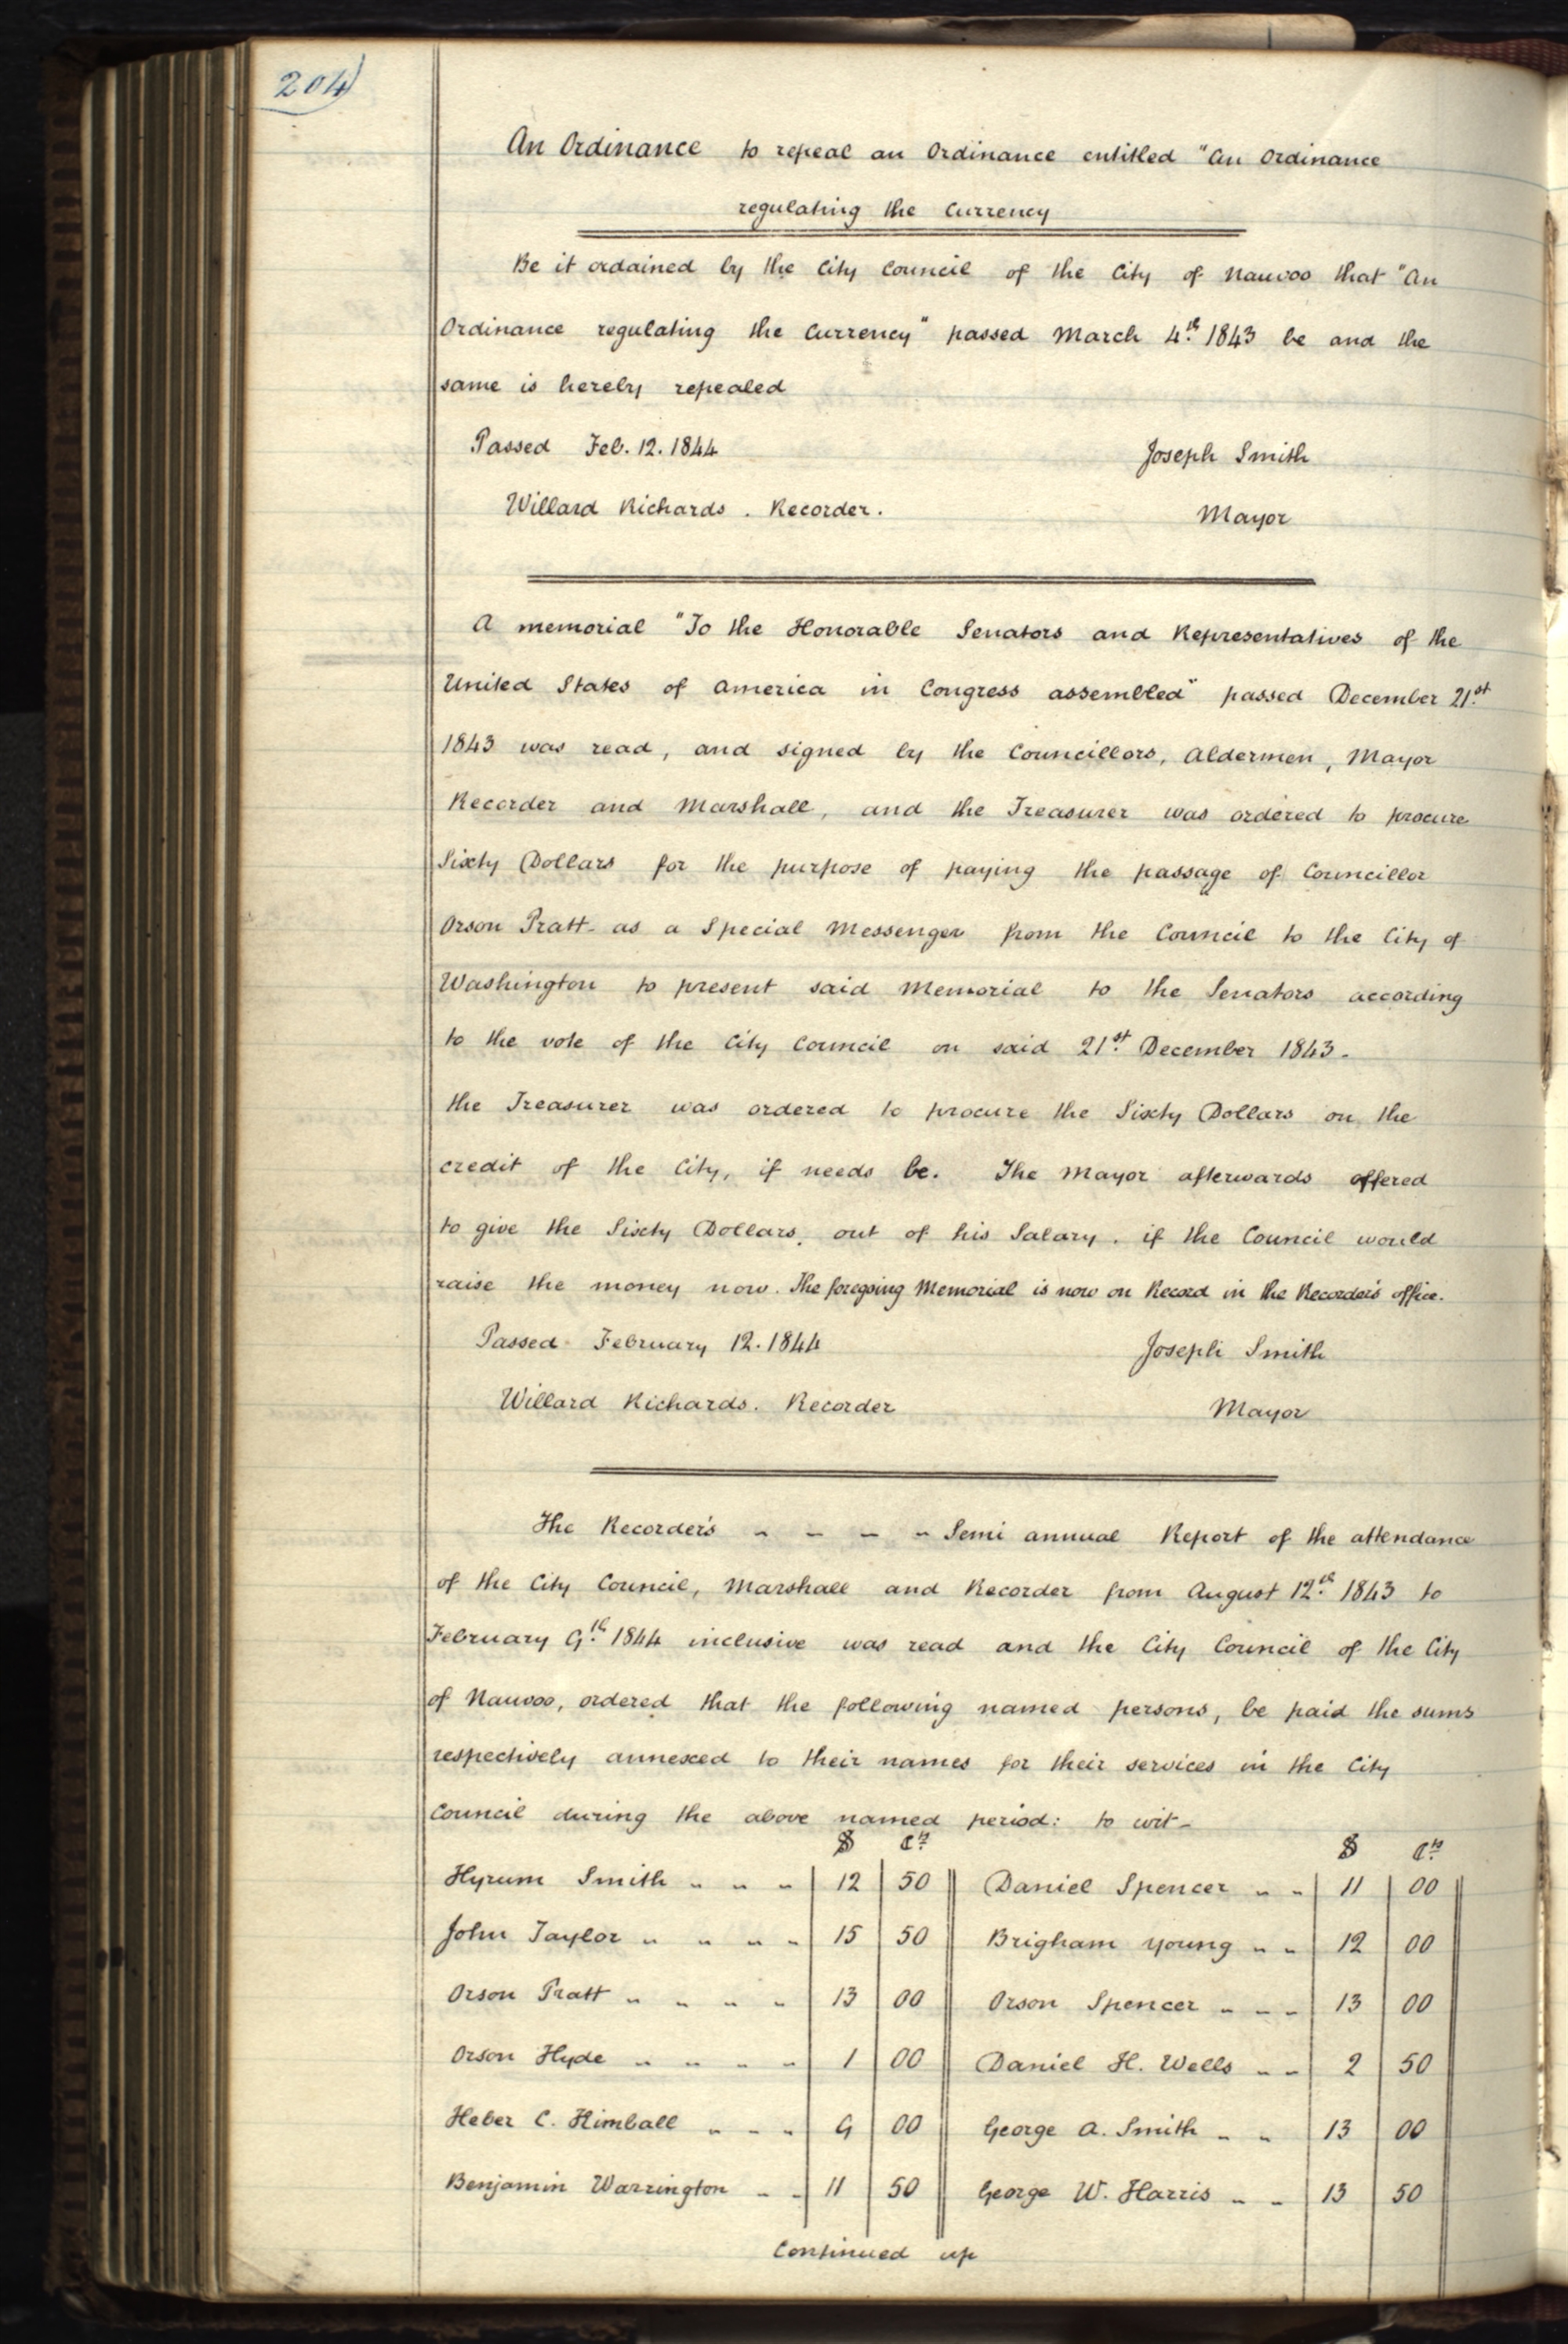 204)
An Ordinance to repeal an Ordinance entitled "An Ordinance
regulating the Currency
Be it ordained by the City Council of the City of Nauvoo that "An
Ordinance regulating the Currency" passed March 4th. 1843 be and the
same is hereby repealed
Passed Feb. 12. 1844 Joseph Smith
Willard Richards. Recorder. Mayor
A memorial "To the Honorable Senators and Representatives of the
United States of America in Congress assembled" passed December 21st.
1843 was read, and signed by the Councillors, Aldermen, Mayor
Recorder and Marshall, and the Treasurer was ordered to procure
Sixty Dollars for the purpose of paying the passage of Councillor
Orson Pratt as a Special Messenger from the Council to the City of
Washington to present said Memorial to the Senators according
to the vote of the City Council on said 21st. December 1843.
the Treasurer was ordered to procure the Sixty Dollars on the
credit of the City, if needs be. The Mayor afterwards offered
to give the Sixty Dollars, out of his Salary. if the Council would
raise the money now. The foregoing Memorial is now on Record in the Recorder's office.
Passed February 12. 1844 Joseph Smith
Willard Richards. Recorder Mayor
The Recorder's - - - - Semi annual Report of the attendance
of the City Council, Marshall and Recorder from August 12th. 1843 to
February 9th. 1844 inclusive was read and the City Council of the City
of Nauvoo, ordered that the following named persons, be paid the sums
respectively annexed to their names for their services in the City
Council during the above named period: to wit-
$ Cts. $ Cts.
Hyrum Smith " " " 12 50 Daniel Spencer " " 11 00
John Taylor " " " " 15 50 Brigham Young " " 12 00
Orson Pratt " " " " 13 00 Orson Spencer " " " 13 00
Orson Hyde " " " " 1 00 Daniel H. Wells " " 2 50
Heber C. Kimball " " " 9 00 George A. Smith " " 13 00
Benjamin Warrington " " 11 50 George W. Harris " " 13 50
Continued up